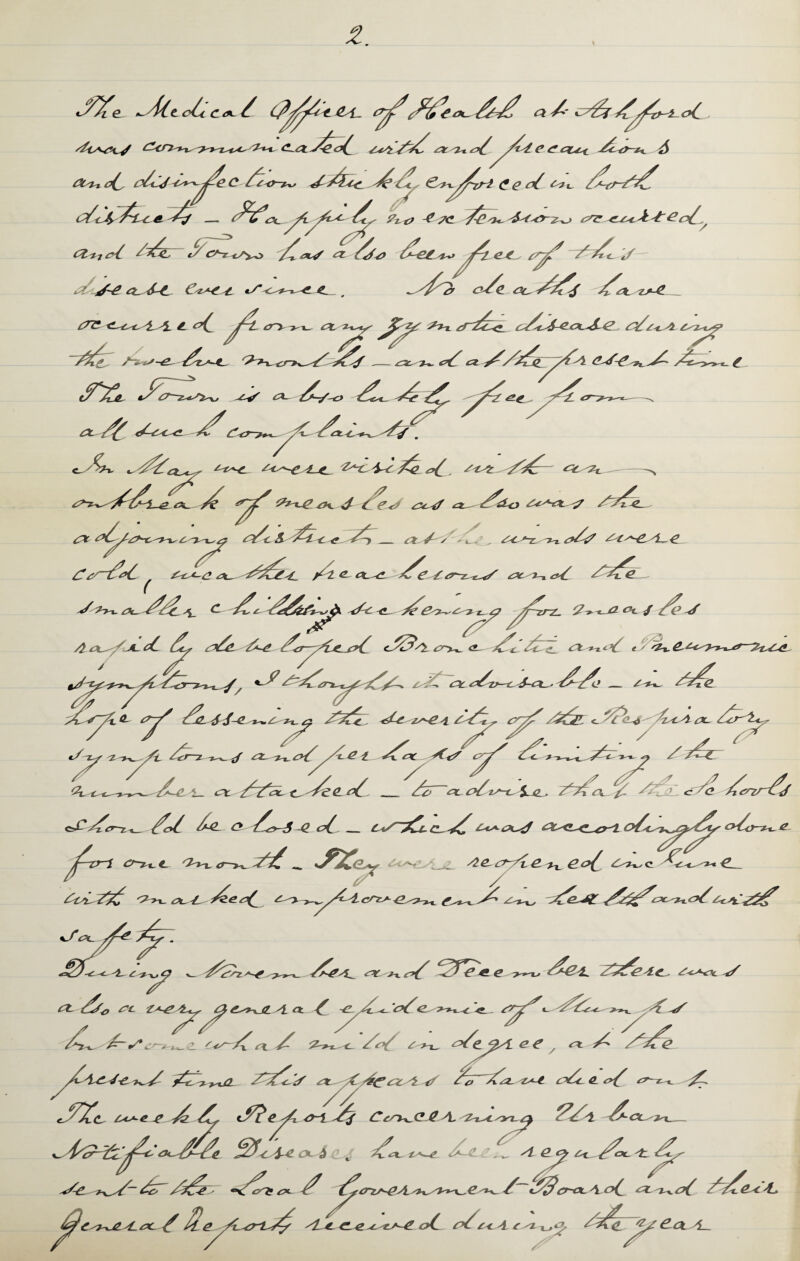 2.
The Medical Officer of Health at Ashford
was communicated with and precautions
and disinfection strictly enforced in both
districts — Happily no extension occurred,
and the Town has also been free of this
disease ever since. No deaths have
occurred from any Zymotic disease during
the twelve months — and at the present time
The Town is also lately free from
all such complaints.
In May we were visited with an
outbreak of measles as also was the
adjoining districts — as the winds were
cold, weather precarious and the
smaller children sickening for measles
rapid ly developed Bronchitic and Pneumonic
symptoms, I thought it advisable — in the
hope of lessening the severity of the Respiratory
symptoms and perhaps of limiting the
number attacked — to advise that the schools
should be closed — which was accordingly done
for one month — They were reopened in June
with marked improvement in health and with
safety.
During November and December there was
also a very general epidemic of Mumps
but some what mild in degree, at the
present time this appears to have died out
The weekly Reports concerning Urban
Notifiable Diseases have been regularly
sent to the Local Government Board and their
General Reports received during the year